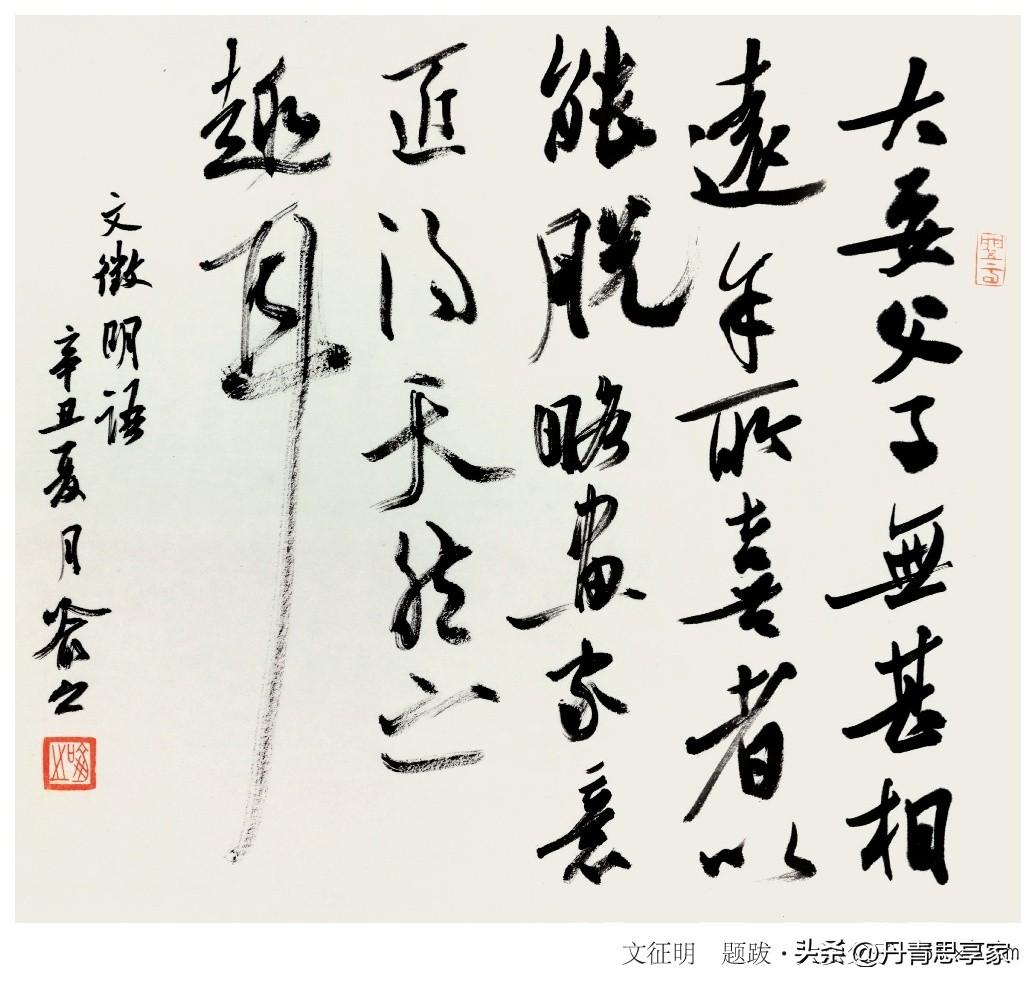 大要父子無甚相
遠余所喜者以
能脱略畫家意
匠得天然之
趣耳
文徵明語
辛丑夏月
文征明 题跋·
头条@丹青思享家